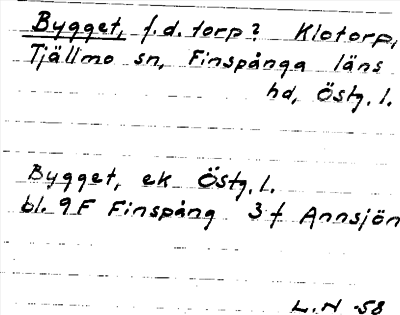 Bygget, f.d. torp? Klotorp,
Tjällmo sn, Finspånga läns
hd, Östg. l.
Bygget, ek Östg. l.
bl. 9F Finspång 3f Annsjön
L.N -58